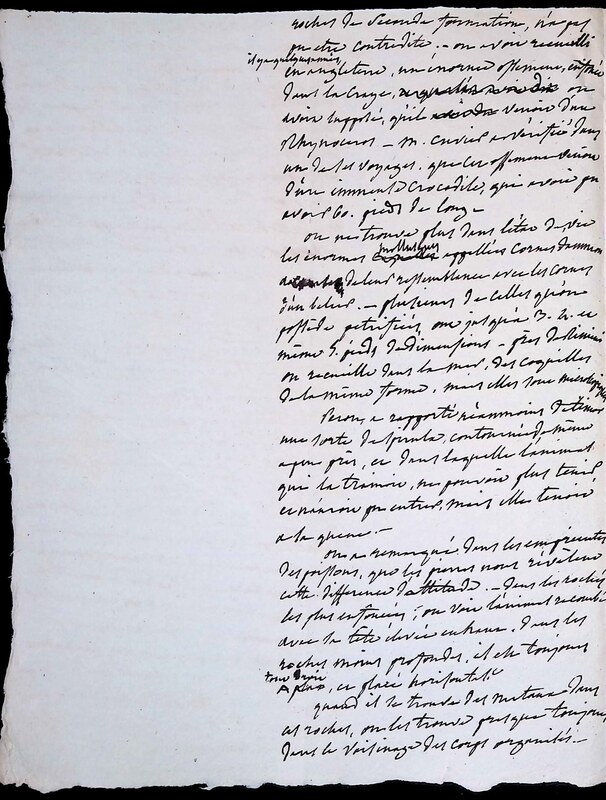 roches de seconde formation, n'a pas
pu etre contredite. - on avoit recueilli
il y a quelques années,
en angleterre, un énorme ossement, enfoncé
dans la craye, on
avoit supposé, qu'il venoit d'un
Rhynoceros - m. cuvier a vérifié dans
un de ses voyages. que cet ossement venoit
d'un immense Crocodile, qui avoit pu
avoir 60. pieds de long -
on ne trouve plus dans l'état de vie
les énormes mollusques appellées Cornes d'ammon
de leur ressemblance avec les cornes
d'un belier. - plusieurs de celles qu'on
possède petrifiées, ont jusqu'à 3. 4. et
même 5. pieds de dimensions - près de Rimini
on recueille dans la mer, des coquilles
de la même forme, mais elles sont microscopiques
Peron, a rapporté néanmoins de timor
une sorte de spirula, contournée de même
a peu près, et dans laquelle l'animal
qui la tramoit, ne pouvoit plus tenir
et n'avoit pu entrer, mais elle tenoit
a la queue. -
on a remarqué dans les empreintes
des poissons, que les pierres nous révèlent
cette difference d'attitude. - dans les roches
les plus enfoncées; on voit l'animal recourbé
avec la tête élevée en haut. dans les
roches moins profondes, il est toujours
tout droit
a plat, et placé horisontal
quand il se trouve des métaux dans
ces roches, on les trouve presque toujours
dans le voisinage des corps organisés -